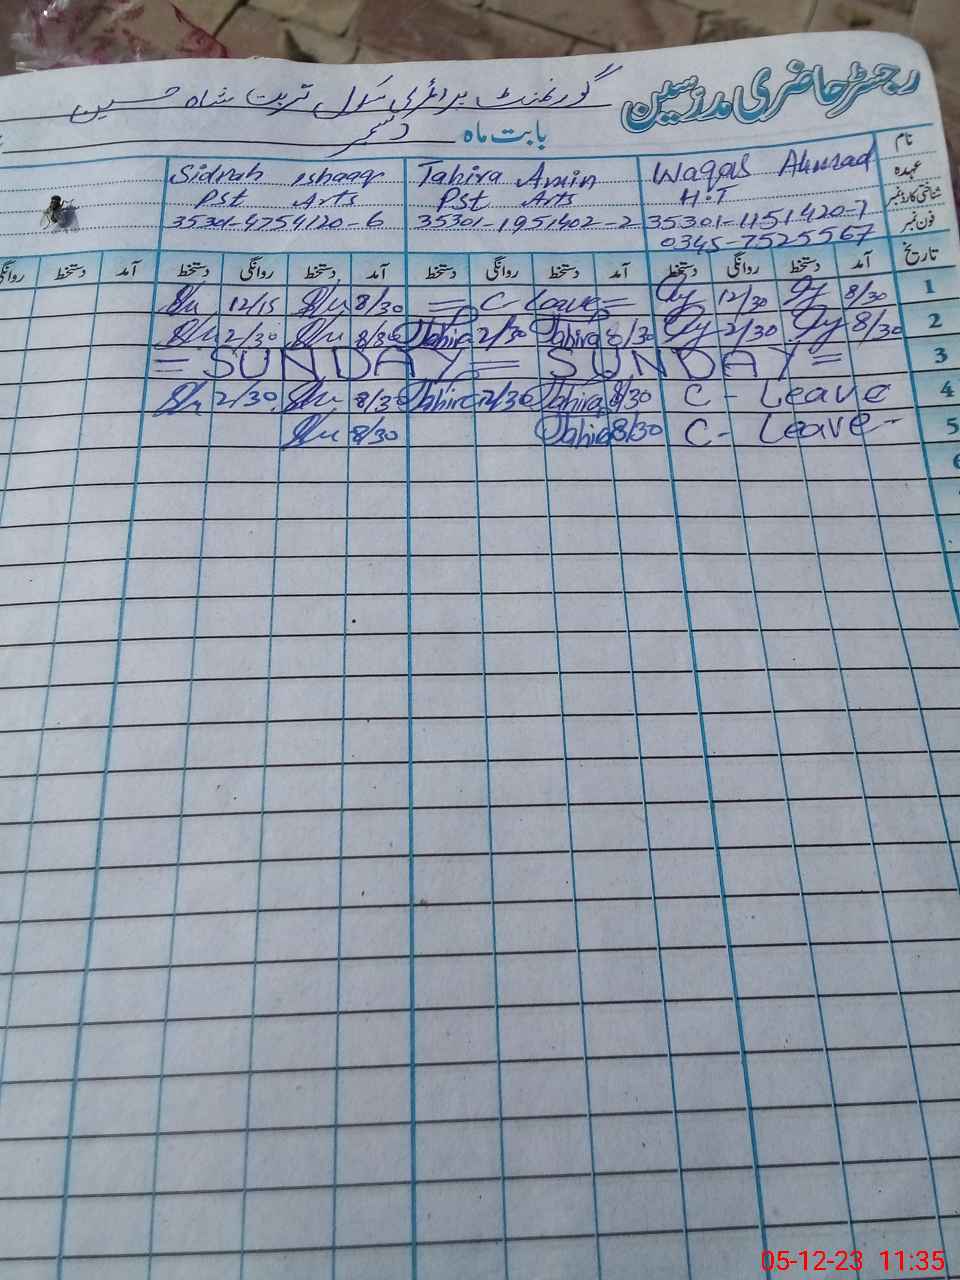 رجسٹر حاضری مدرسین
گورنمنٹ پرائمری سکول تربت شاہ حسین
بابت ماہ دسمبر
نام Waqas Ahmad Tahira Amin Sidrah Ishaaq
عہدہ H.T Pst Arts Pst Arts
شناختی کارڈ نمبر 35301-1151420-7 35301-1951402-2 35301-4754120-6
فون نمبر 0345-7525567
تاریخ آمد دستخط روانگی دستخط آمد دستخط روانگی دستخط آمد دستخط روانگی دستخط آمد دستخط روانگی
1 8/30 12/30 = C- Leave = 8/30 12/15
2 8/30 2/30 Tahira 8/30 Tahira 2/30 8/30 2/30
3 = SUNDAY = SUNDAY =
4 C - Leave Tahira 8/30 Tahira 2/30 8/30 2/30
5 C - Leave - Tahira 8/30 8/30
6
05-12-23 11:35